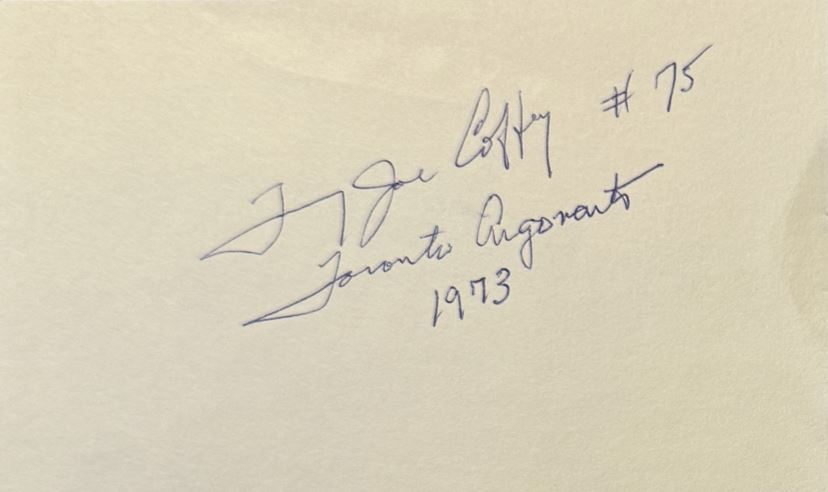 Tommy Joe Coffey # 75
Toronto Argonauts
1973